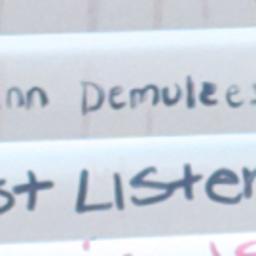 nn Demulee
st Lister